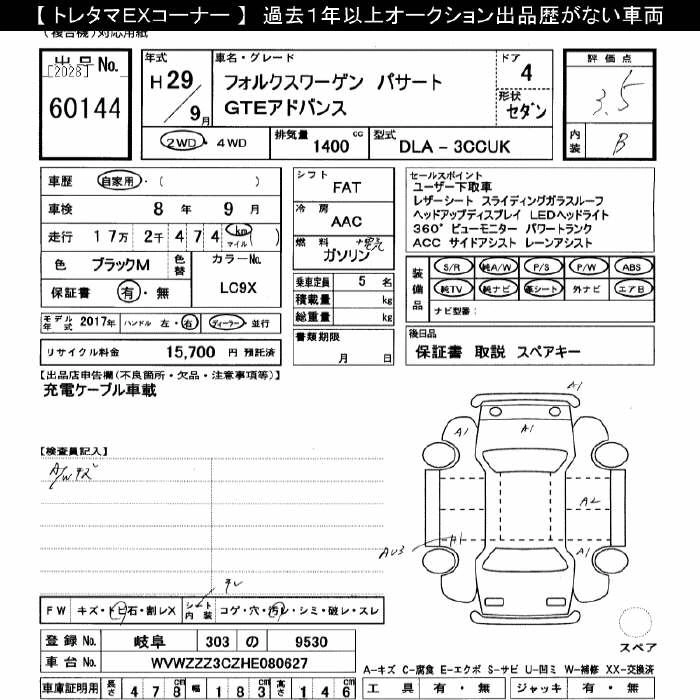 【トレタマEXコーナー】 過去1年以上オークション出品歴がない車両
(複合機)対応用紙
出品No.
[2028]
60144
年式 H29/9月
車名・グレード
フォルクスワーゲン パサート
GTEアドバンス
ドア 4
形状 セダン
評価点 3.5
内装 B
2WD・4WD
排気量 1400 cc
型式 DLA - 3CCUK
車歴 自家用・( )
車検 8年 9月
走行 17万 2千 474 km マイル ( )
色 ブラックM
色替
カラーNo. LC9X
保証書 有・無
モデル年式 2017年
ハンドル 左・右
ディーラー・並行
リサイクル料金 15,700 円 預託済
シフト FAT
冷房 AAC
燃料 ガソリン +電気
乗車定員 5名
積載量 kg
総重量 kg
書類期限 月 日
セールスポイント
ユーザー下取車
レザーシート スライディングガラスルーフ
ヘッドアップディスプレイ LEDヘッドライト
360°ビューモニター パワートランク
ACC サイドアシスト レーンアシスト
装備品
S/R 純A/W P/S P/W ABS
純TV 純ナビ 革シート 外ナビ エアB
ナビ型番:
後日品
保証書 取説 スペアキー
【出品店申告欄(不良箇所・欠品・注意事項等)】
充電ケーブル車載
【検査員記入】
A/W キズ
A1
A1
A1
A1
A2
AU3
A1
A1
テレ
FW キズ・トビ石・割レX
シート内装 コゲ・穴・汚レ・シミ・破レ・スレ
登録No. 岐阜 303 の 9530
車台No. WVWZZZ3CZHE080627
車庫証明用 長さ 478cm 幅 183cm 高さ 146cm
スペア
A-キズ C-腐食 E-エクボ S-サビ U-凹ミ W-補修 XX-交換済
工具 有・無 ジャッキ 有・無